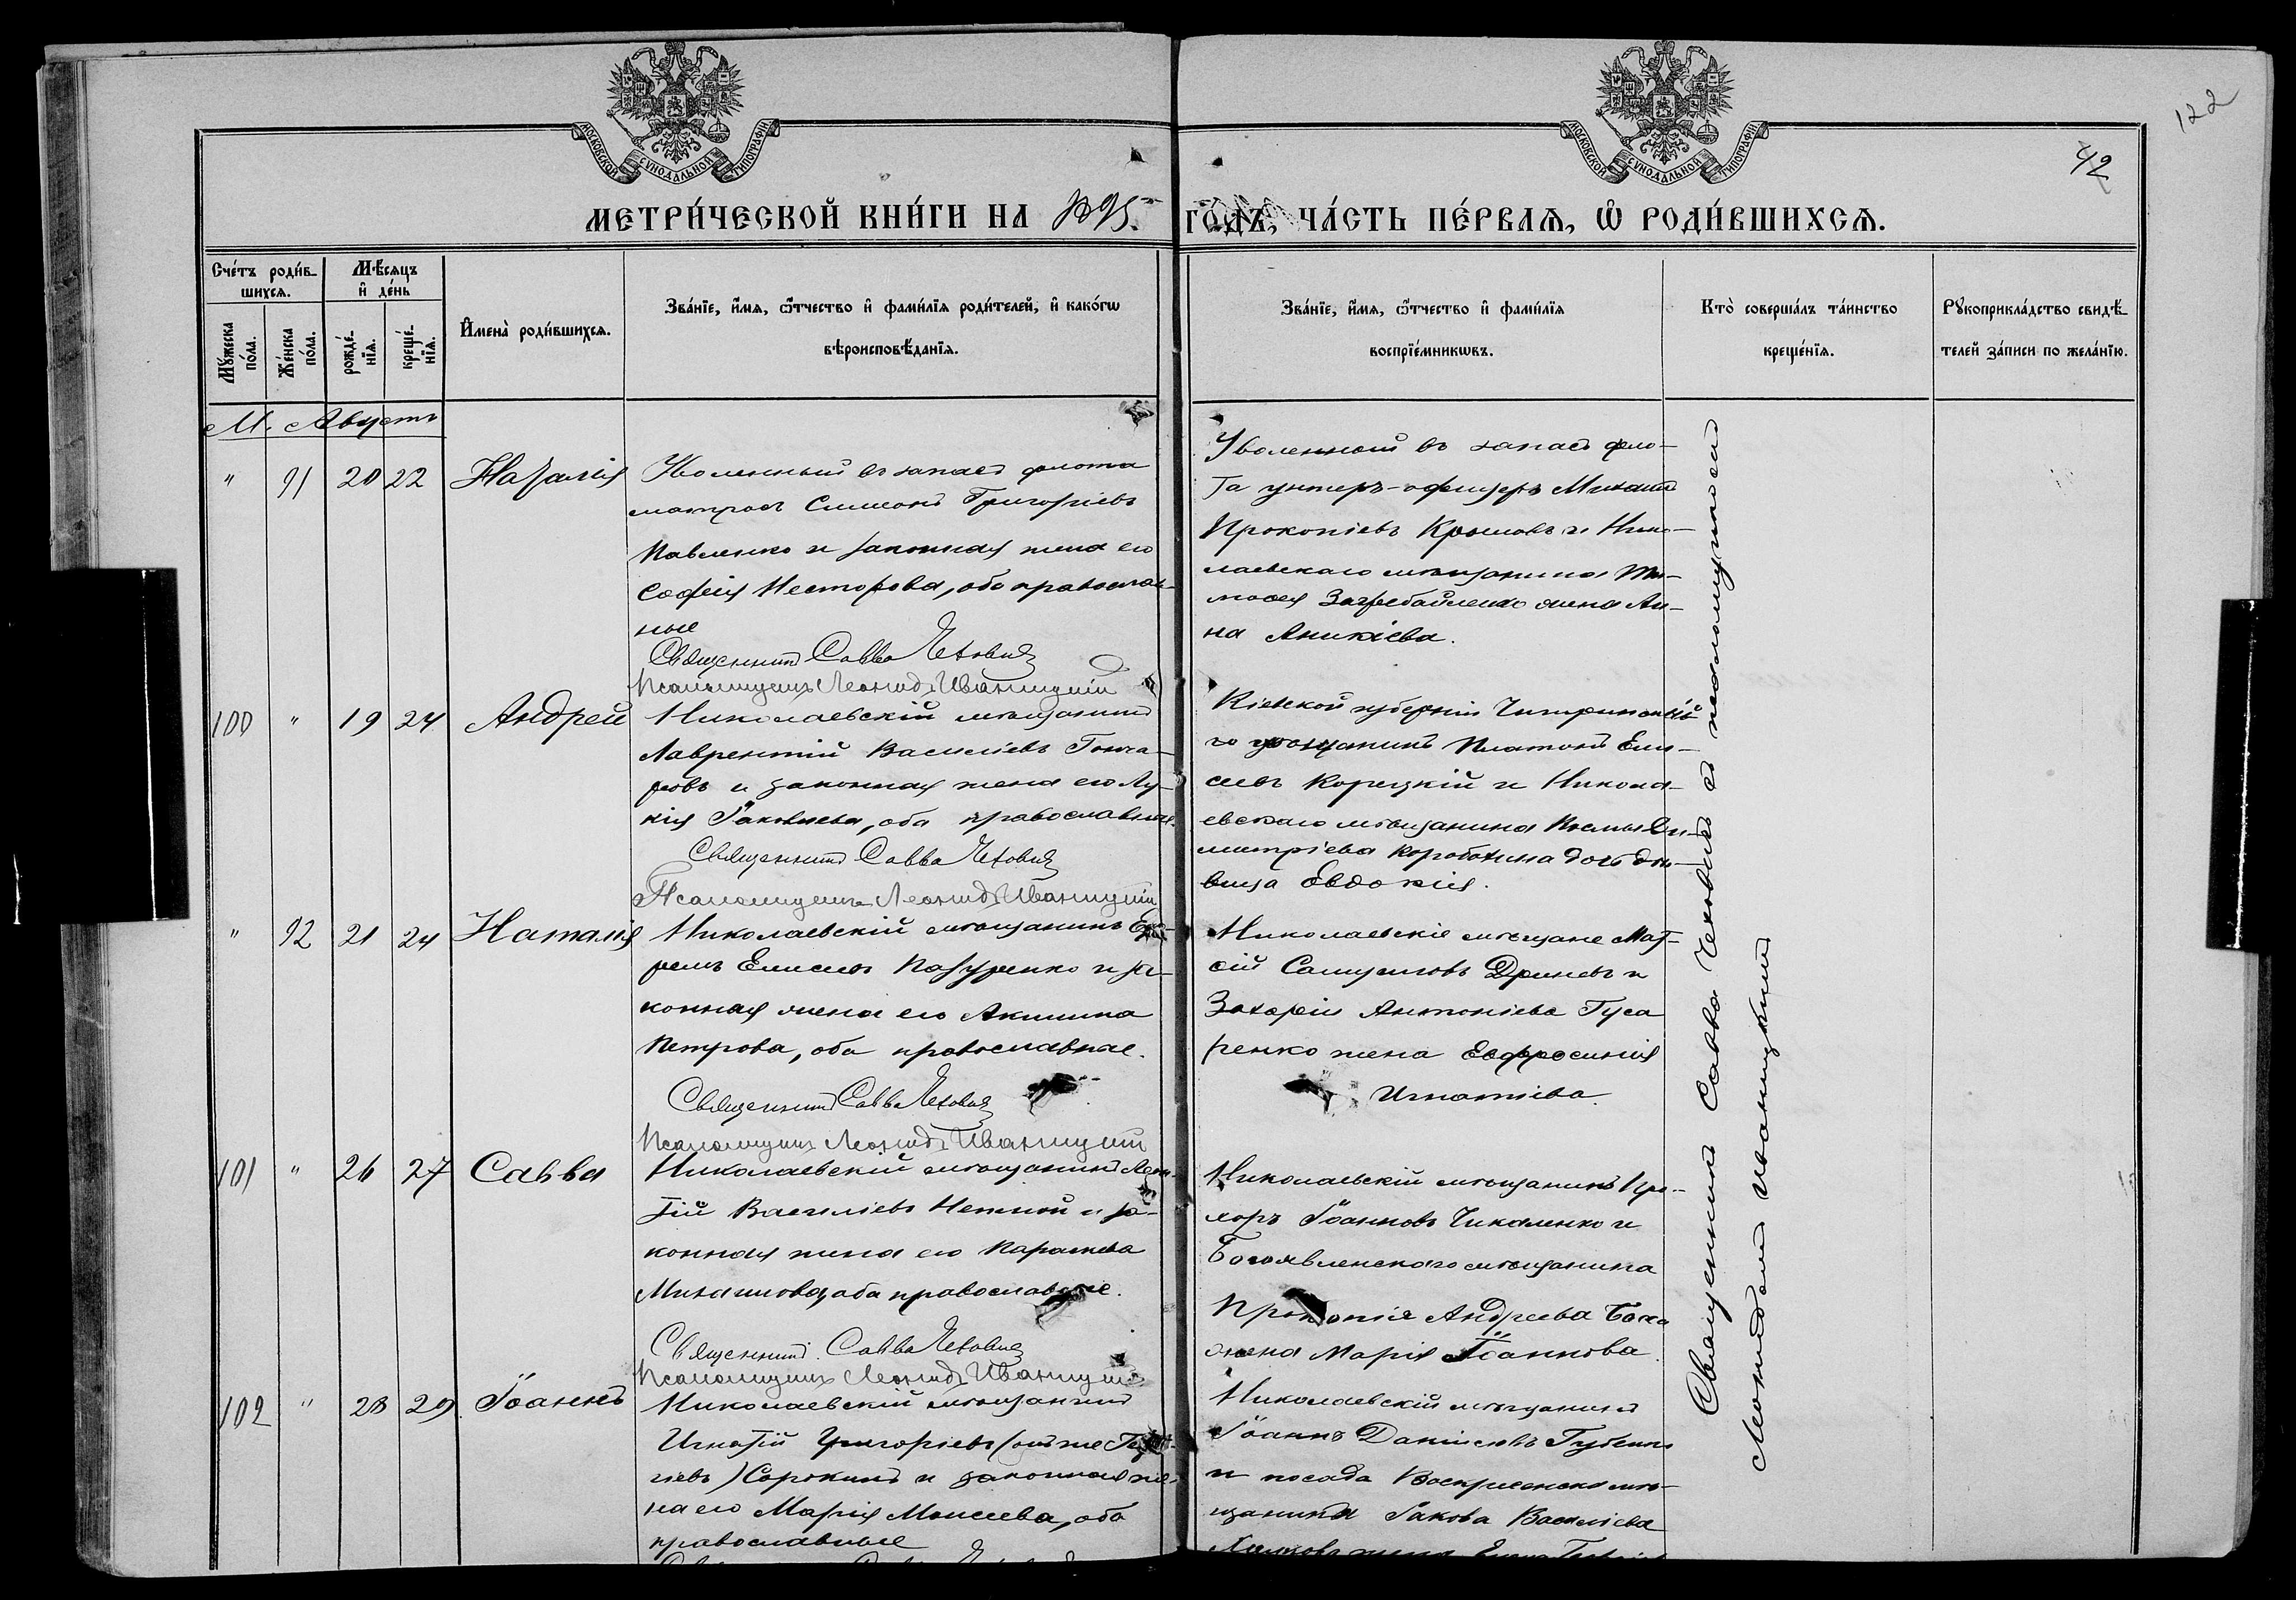 122
42
МОСКОВСКОЙ СѴНОДАЛЬНОЙ ТИПОГРАФІИ
МОСКОВСКОЙ СѴНОДАЛЬНОЙ ТИПОГРАФІИ
МЕТРИ́ЧЕСКОЙ КНИ́ГИ НА 1895 ГО́ДЪ, ЧА́СТЬ ПЕ́РВАѦ, Ѡ҆ РОДИ́ВШИХСѦ.
Сче́тъ роди́в-
шихся.
Мꙋ́жеска по́ла.
Же́нска по́ла.
Мѣ́сяцъ
и҆ де́нь
рожде́-
нїѧ.
креще́-
нїѧ.
И҆мена̀ роди́вшихсѧ.
Зва́нїе, и҆́мѧ, ѻ҆́тчество и҆ фами́лїѧ роди́телей, и҆ како́гѡ
вѣроисповѣ́данїѧ.
Зва́нїе, и҆́мѧ, ѻ҆́тчество и҆ фами́лїѧ
воспрїе́мникѡвъ.
Кто̀ соверша́лъ та́инство
креще́нїѧ.
Рꙋкоприкла́дство свидѣ́-
телей за́писи по жела́нїю.
М. Августъ
" 91 20 22 Наталія
Уволенный въ запасъ флота
матросъ Симеонъ Григоріевъ
Павленко и законная жена его
Софія Несторова, оба православ-
ные
Священникъ Савва Чеховичъ
Псаломщикъ Леонидъ Иваницкій
Уволенный въ запасъ фло-
та унтеръ-офицеръ Михаилъ
Прокопіевъ Крыловъ и Нико-
лаевскаго мѣщанина Ти-
мофея Загребайленко жена Ан-
на Аникіева.
100 " 19 24 Андрей
Николаевскій мѣщанинъ
Лаврентій Василіевъ Гонча-
ровъ и законная жена его Лу-
кія Іаковлева, оба православные.
Священникъ Савва Чеховичъ
Псаломщикъ Леонидъ Иваницкій
Кіевской губерніи
мѣщанинъ Платонъ Ели-
сеевъ Корецкій и Никола-
евскаго мѣщанина Космы Ди-
митріева дочь дѣ-
вица Евдокія.
" 92 21 24 Наталія
Николаевскій мѣщанинъ Еф-
ремъ Елисеевъ Назуренко и за-
конная жена его Акилина
Петрова, оба православные.
Священникъ Савва Чеховичъ
Псаломщикъ Леонидъ Иваницкій
Николаевскіе мѣщане Мат-
ѳій Самуиловъ и
Захаріи Антоніева Гуса
ренко жена Евфросинія
Игнатіева.
101 " 26 27 Савва
Николаевскій мѣщанинъ Леон-
тій Василіевъ и за-
конная жена его Параскева
Михаилова, оба православные.
Священникъ Савва Чеховичъ
Псаломщикъ Леонидъ Иваницкій
Николаевскій мѣщанинъ Про-
хоръ Іоанновъ Чикаленко и
Богоявленскаго мѣщанина
Прокопія Андреева
жена Марія Іоаннова.
102 " 28 29 Іоаннъ
Николаевскій мѣщанинъ
Игнатій Григоріевъ (онъ же
) Сорокинъ и законная же-
на его Марія Моисеева, оба
православные
Николаевскій мѣщанинъ
Іоаннъ Даніиловъ
и посада Воскресенска мѣ-
щанина Іакова Василіева
жена
Священникъ Савва Чеховичъ съ псаломщикомъ
Леонидомъ Иваницкимъ